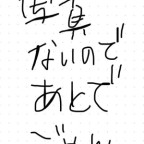 写真
ないので
あとで